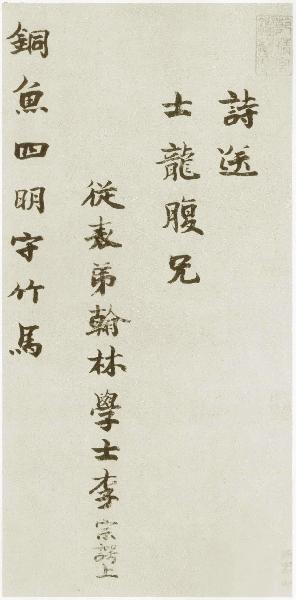 詩送
士龍腹兄
從表弟翰林學士李宗諤上
銅魚四明守竹馬